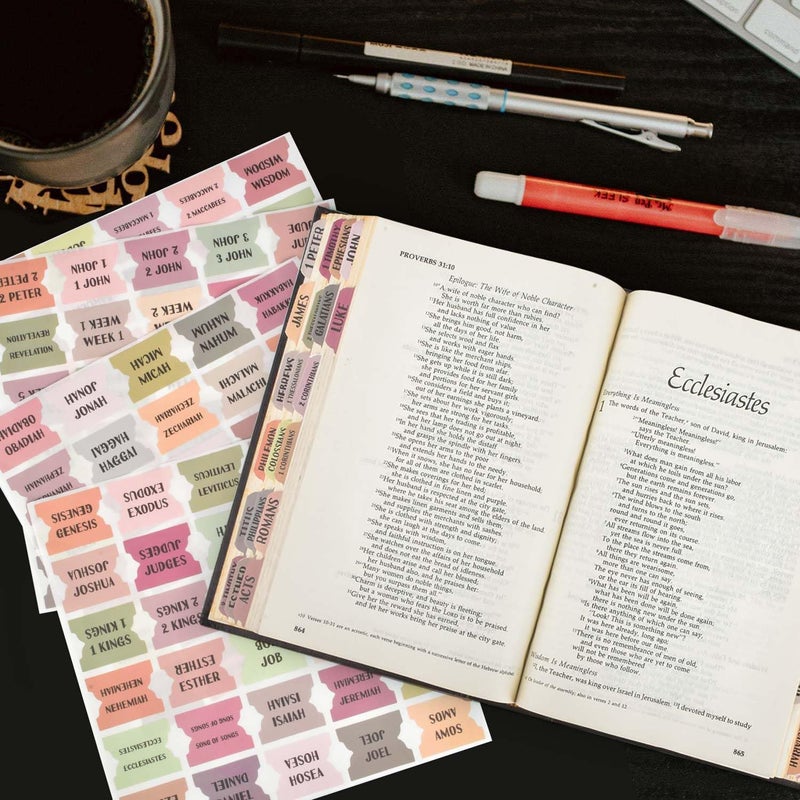 Mr. Pen SLEEK
WISDOM
WISDOM
2 MACCABEES
2 MACCABEES
1 MACCABEES
2 PETER
2 PETER
1 JOHN
1 JOHN
2 JOHN
2 JOHN
3 JOHN
3 JOHN
REVELATION
REVELATION
WEEK 1
WEEK 1
WEEK 2
HABAKKUK
NAHUM
NAHUM
MICAH
MICAH
JONAH
JONAH
OBADIAH
OBADIAH
MALACHI
ZECHARIAH
ZECHARIAH
HAGGAI
HAGGAI
ZEPHANIAH
GENESIS
GENESIS
EXODUS
EXODUS
LEVITICUS
LEVITICUS
JOSHUA
JOSHUA
JUDGES
JUDGES
1 KINGS
1 KINGS
2 KINGS
2 KINGS
NEHEMIAH
NEHEMIAH
ESTHER
ESTHER
JOB
JOB
ECCLESIASTES
ECCLESIASTES
SONG OF SONGS
SONG OF SONGS
ISAIAH
ISAIAH
JEREMIAH
JEREMIAH
DANIEL
DANIEL
HOSEA
HOSEA
JOEL
JOEL
AMOS
AMOS
1 PETER
1 TIMOTHY
EPHESIANS
JOHN
JAMES
GALATIANS
LUKE
HEBREWS
1 THESSALONIANS
2 CORINTHIANS
PHILEMON
COLOSSIANS
1 CORINTHIANS
TITUS
PHILIPPIANS
ROMANS
ACTS
PROVERBS 31:10
Epilogue: The Wife of Noble Character
10A wife of noble character who can find?
She is worth far more than rubies.
11Her husband has full confidence in her
and lacks nothing of value.
12She brings him good, not harm,
all the days of her life.
13She selects wool and flax
and works with eager hands.
14She is like the merchant ships,
bringing her food from afar.
15She gets up while it is still dark;
she provides food for her family
and portions for her servant girls.
16She considers a field and buys it;
out of her earnings she plants a vineyard.
17She sets about her work vigorously;
her arms are strong for her tasks.
18She sees that her trading is profitable,
and her lamp does not go out at night.
19In her hand she holds the distaff
and grasps the spindle with her fingers.
20She opens her arms to the poor
and extends her hands to the needy.
21When it snows, she has no fear for her household;
for all of them are clothed in scarlet.
22She makes coverings for her bed;
she is clothed in fine linen and purple.
23Her husband is respected at the city gate,
where he takes his seat among the elders of the land.
24She makes linen garments and sells them,
and supplies the merchants with sashes.
25She is clothed with strength and dignity;
she can laugh at the days to come.
26She speaks with wisdom,
and faithful instruction is on her tongue.
27She watches over the affairs of her household
and does not eat the bread of idleness.
28Her children arise and call her blessed;
her husband also, and he praises her:
29"Many women do noble things,
but you surpass them all."
30Charm is deceptive, and beauty is fleeting;
but a woman who fears the LORD is to be praised.
31Give her the reward she has earned,
and let her works bring her praise at the city gate.
*10 Verses 10-31 are an acrostic, each verse beginning with a successive letter of the Hebrew alphabet.
864
Ecclesiastes
Everything Is Meaningless
1 The words of the Teacher,* son of David, king in Jerusalem:
2"Meaningless! Meaningless!"
says the Teacher.
"Utterly meaningless!
Everything is meaningless."
3What does man gain from all his labor
at which he toils under the sun?
4Generations come and generations go,
but the earth remains forever.
5The sun rises and the sun sets,
and hurries back to where it rises.
6The wind blows to the south
and turns to the north;
round and round it goes,
ever returning on its course.
7All streams flow into the sea,
yet the sea is never full.
To the place the streams come from,
there they return again.
8All things are wearisome,
more than one can say.
The eye never has enough of seeing,
or the ear its fill of hearing.
9What has been will be again,
what has been done will be done again;
there is nothing new under the sun.
10Is there anything of which one can say,
"Look! This is something new"?
It was here already, long ago;
it was here before our time.
11There is no remembrance of men of old,
and even those who are yet to come
will not be remembered
by those who follow.
Wisdom Is Meaningless
12I, the Teacher, was king over Israel in Jerusalem. 13I devoted myself to study
*1 Or leader of the assembly; also in verses 2 and 12
865